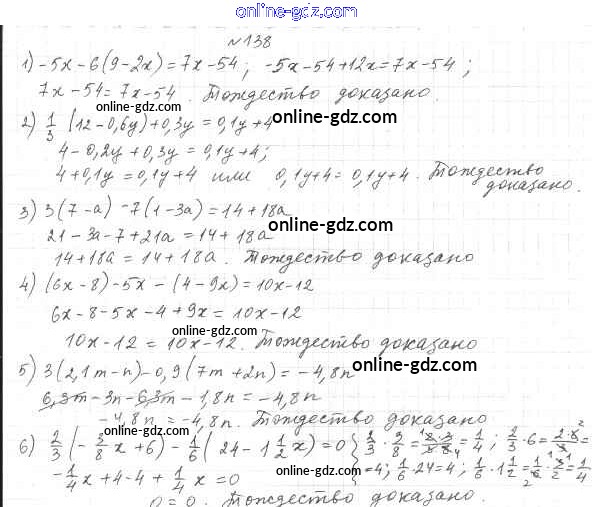 online-gdz.com
№138
1) -5x-6(9-2x)=7x-54; -5x-54+12x=7x-54;
7x-54=7x-54. Тождество доказано.
online-gdz.com
2) 1/3 (12-0,6y)+0,3y=0,1y+4
online-gdz.com
4-0,2y+0,3y=0,1y+4;
4+0,1y=0,1y+4 или 0,1y+4=0,1y+4. Тождество доказано.
3) 3(7-a)-7(1-3a)=14+18a
online-gdz.com
21-3a-7+21a=14+18a
14+18a=14+18a. Тождество доказано
online-gdz.com
4) (6x-8)-5x-(4-9x)=10x-12
6x-8-5x-4+9x=10x-12
online-gdz.com
10x-12=10x-12. Тождество доказано
online-gdz.com
5) 3(2,1m-n)-0,9(7m+2n)=-4,8n
6,3m-3n-6,3m-1,8n=-4,8n
online-gdz.com
-4,8n=-4,8n. Тождество доказано
online-gdz.com
6) 2/3(-3/8x+6)-1/6(24-1 1/2x)=0 { 2/3·3/8=2·3/3·8 4=1/4; 2/3·6=2·6/3 2=
online-gdz.com
-1/4x+4-4+1/4x=0 =4; 1/6·24=4; 1/6·1 1/2=1/6·3/2=1/4
0=0. Тождество доказано.